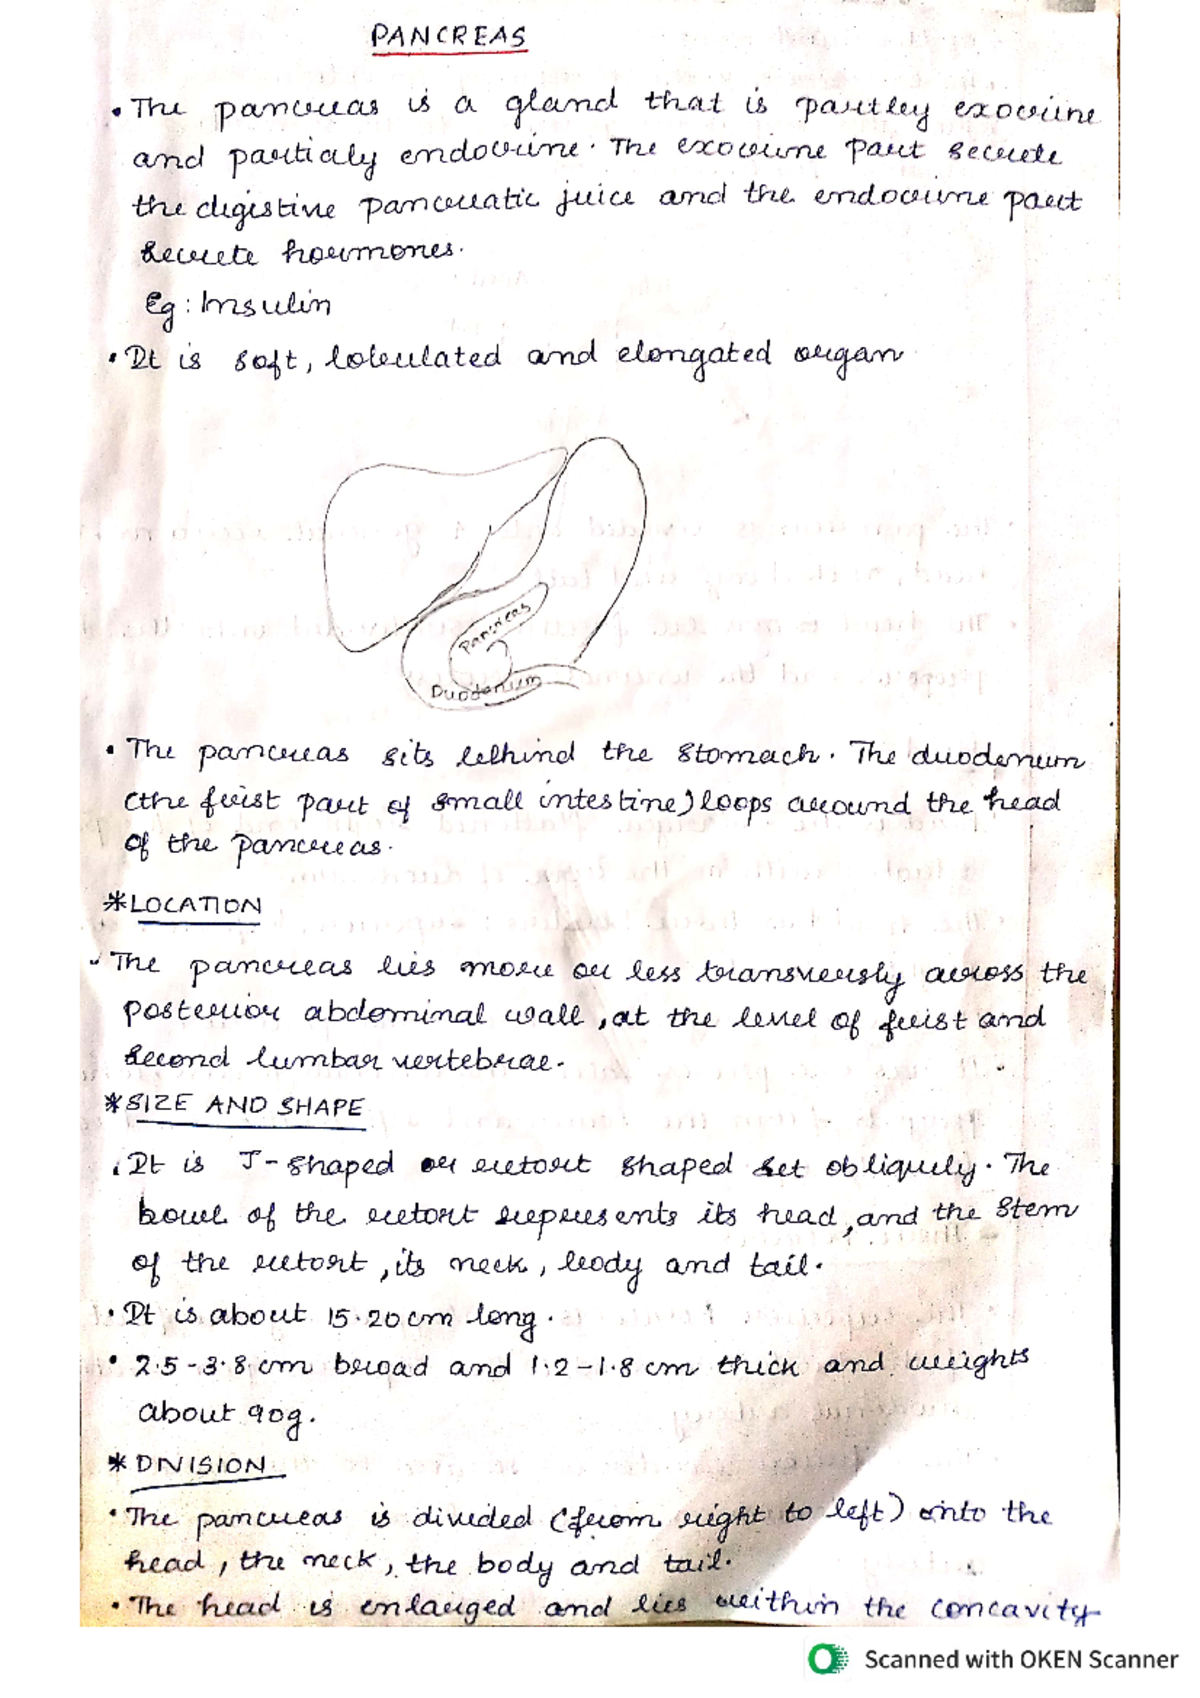 PANCREAS
• The pancreas is a gland that is partley exocrine
and partialy endocrine. The exocrine part secrete
the digistive pancreatic juice and the endocrine part
secrete hormones.
Eg : Insulin
• It is soft, lobulated and elongated organ
Pancreas
Duodenum
• The pancreas sits behind the stomach. The duodenum
(the first part of small intestine) loops around the head
of the pancreas.
* LOCATION
- The pancreas lies more or less transversly across the
posterior abdominal wall, at the level of first and
second lumbar vertebrae.
* SIZE AND SHAPE
. It is J-shaped or retort shaped set obliquely. The
bowl of the retort represents its head, and the stem
of the retort, its neck, body and tail.
• It is about 15.20 cm long.
• 2.5 - 3.8 cm broad and 1.2 - 1.8 cm thick and weights
about 90g.
* DIVISION
• The pancreas is divided (from right to left) into the
head, the neck, the body and tail.
• The head is enlarged and lies within the concavity
Scanned with OKEN Scanner